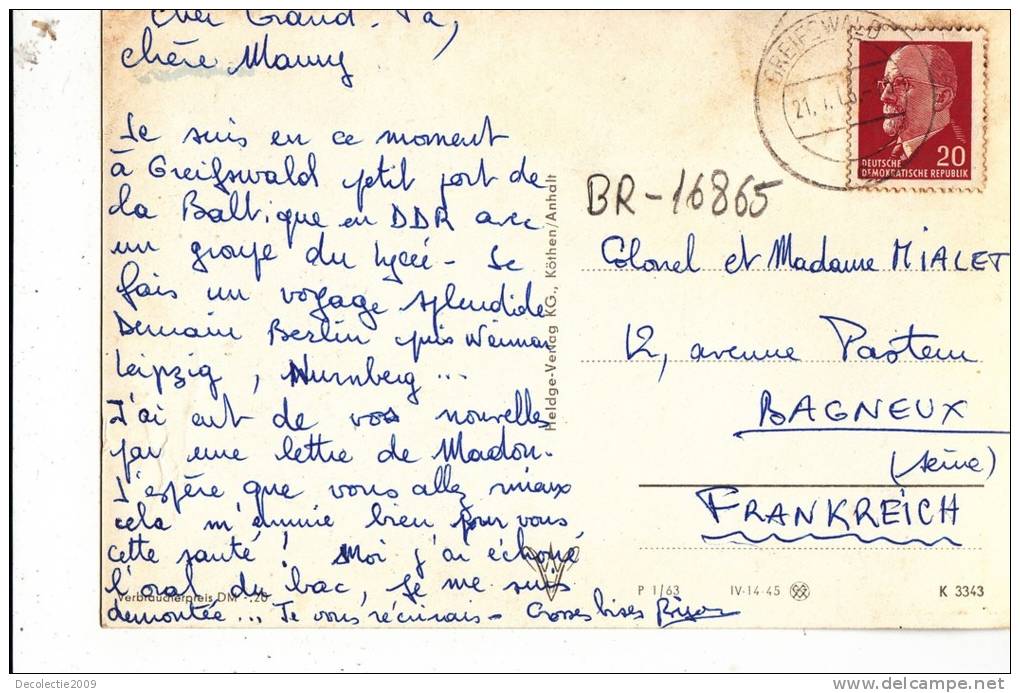 Cher Grand-Pa,
chère Mamy
Je suis en ce moment
à Greifswald petit port de
la Baltique en DDR avec
un groupe du lycée - Je
fais un voyage splendide
Demain Berlin puis Weimar
Leipzig, Nurnberg ...
J'ai eut de vos nouvelles
par une lettre de Madon.
J'espère que vous allez mieux
cela m'ennuie bien pour vous
cette santé ! Moi j'ai échoué
l'oral du bac, je me suis
démontée ... Je vous réécrirais - Grosses bises
Verbraucherpreis DM -.20
Heldge-Verlag KG., Köthen/Anhalt
GREIFSWALD
DEUTSCHE
DEMOKRATISCHE REPUBLIK
20
BR-16865
Colonel et Madame MIALET
12, avenue Pasteur
BAGNEUX
(Seine)
FRANKREICH
P 1/63 IV-14-45 K 3343
Decolectie2009
http://www.delcampe.net